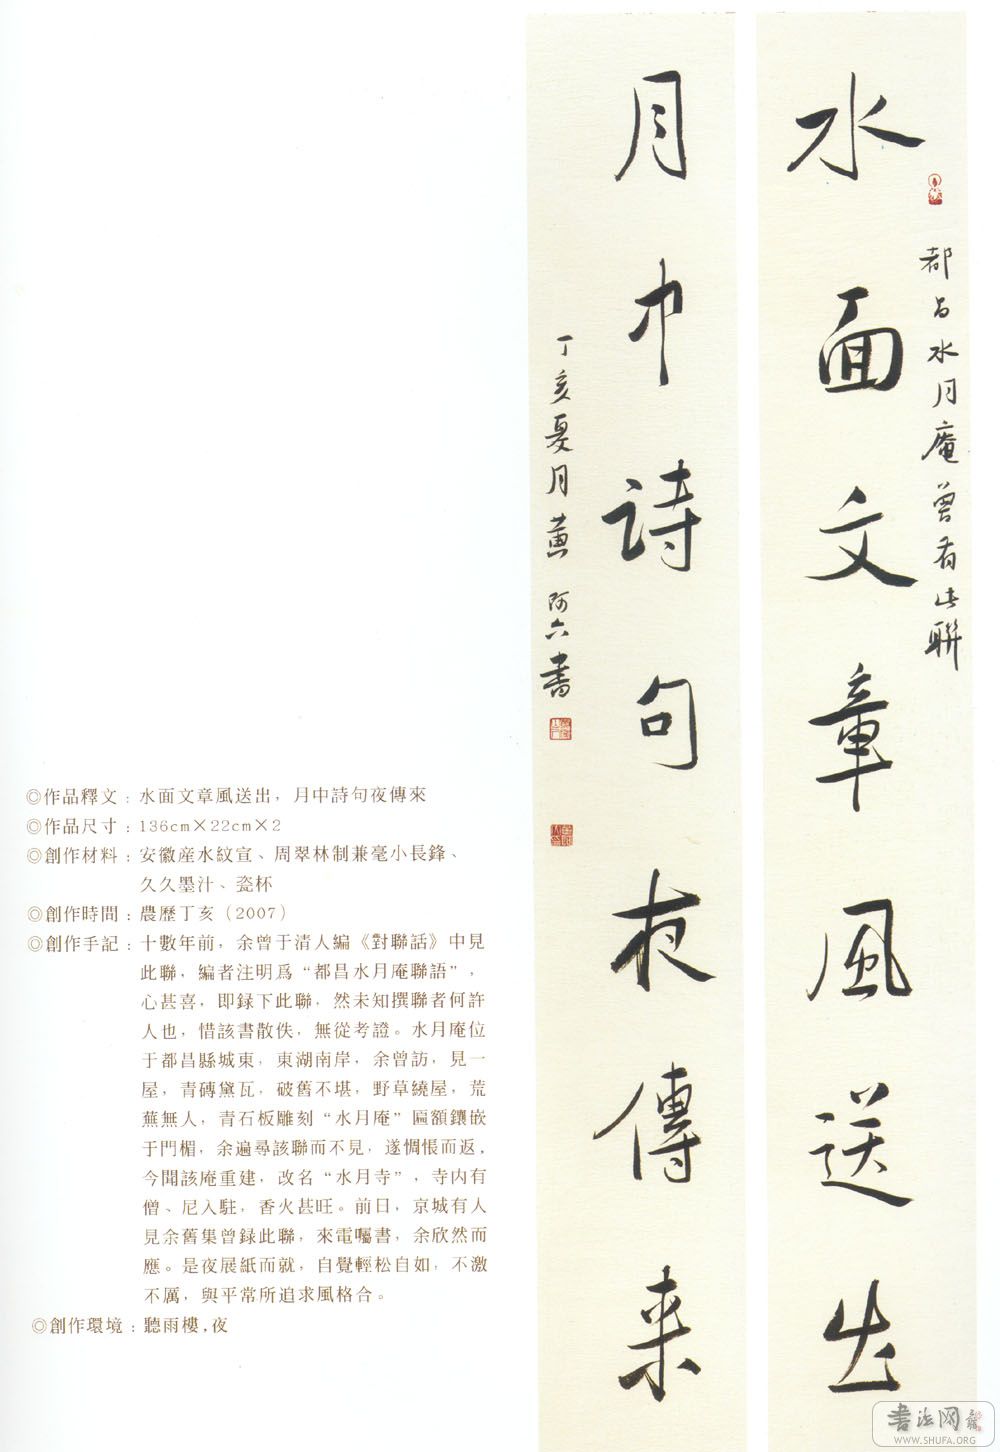 水面文章風送出
都昌水月庵曾有此聯
月中詩句夜傳来
丁亥夏月黄阿六書
◎作品釋文：水面文章風送出，月中詩句夜傳來
◎作品尺寸：136cm×22cm×2
◎創作材料：安徽産水紋宣、周翠林制兼毫小長鋒、
久久墨汁、瓷杯
◎創作時間：農歷丁亥（2007）
◎創作手記：十數年前，余曾于清人編《對聯話》中見
此聯，編者注明爲“都昌水月庵聯語”，
心甚喜，即録下此聯，然未知撰聯者何許
人也，惜該書散佚，無從考證。水月庵位
于都昌縣城東，東湖南岸，余曾訪，見一
屋，青磚黛瓦，破舊不堪，野草繞屋，荒
蕪無人，青石板雕刻“水月庵”匾額鑲嵌
于門楣，余遍尋該聯而不見，遂惆悵而返。
今聞該庵重建，改名“水月寺”，寺内有
僧、尼入駐，香火甚旺。前日，京城有人
見余舊集曾録此聯，來電囑書，余欣然而
應。是夜展紙而就，自覺輕松自如，不激
不厲，與平常所追求風格合。
◎創作環境：聽雨樓，夜
書法网
WWW.SHUFA.ORG